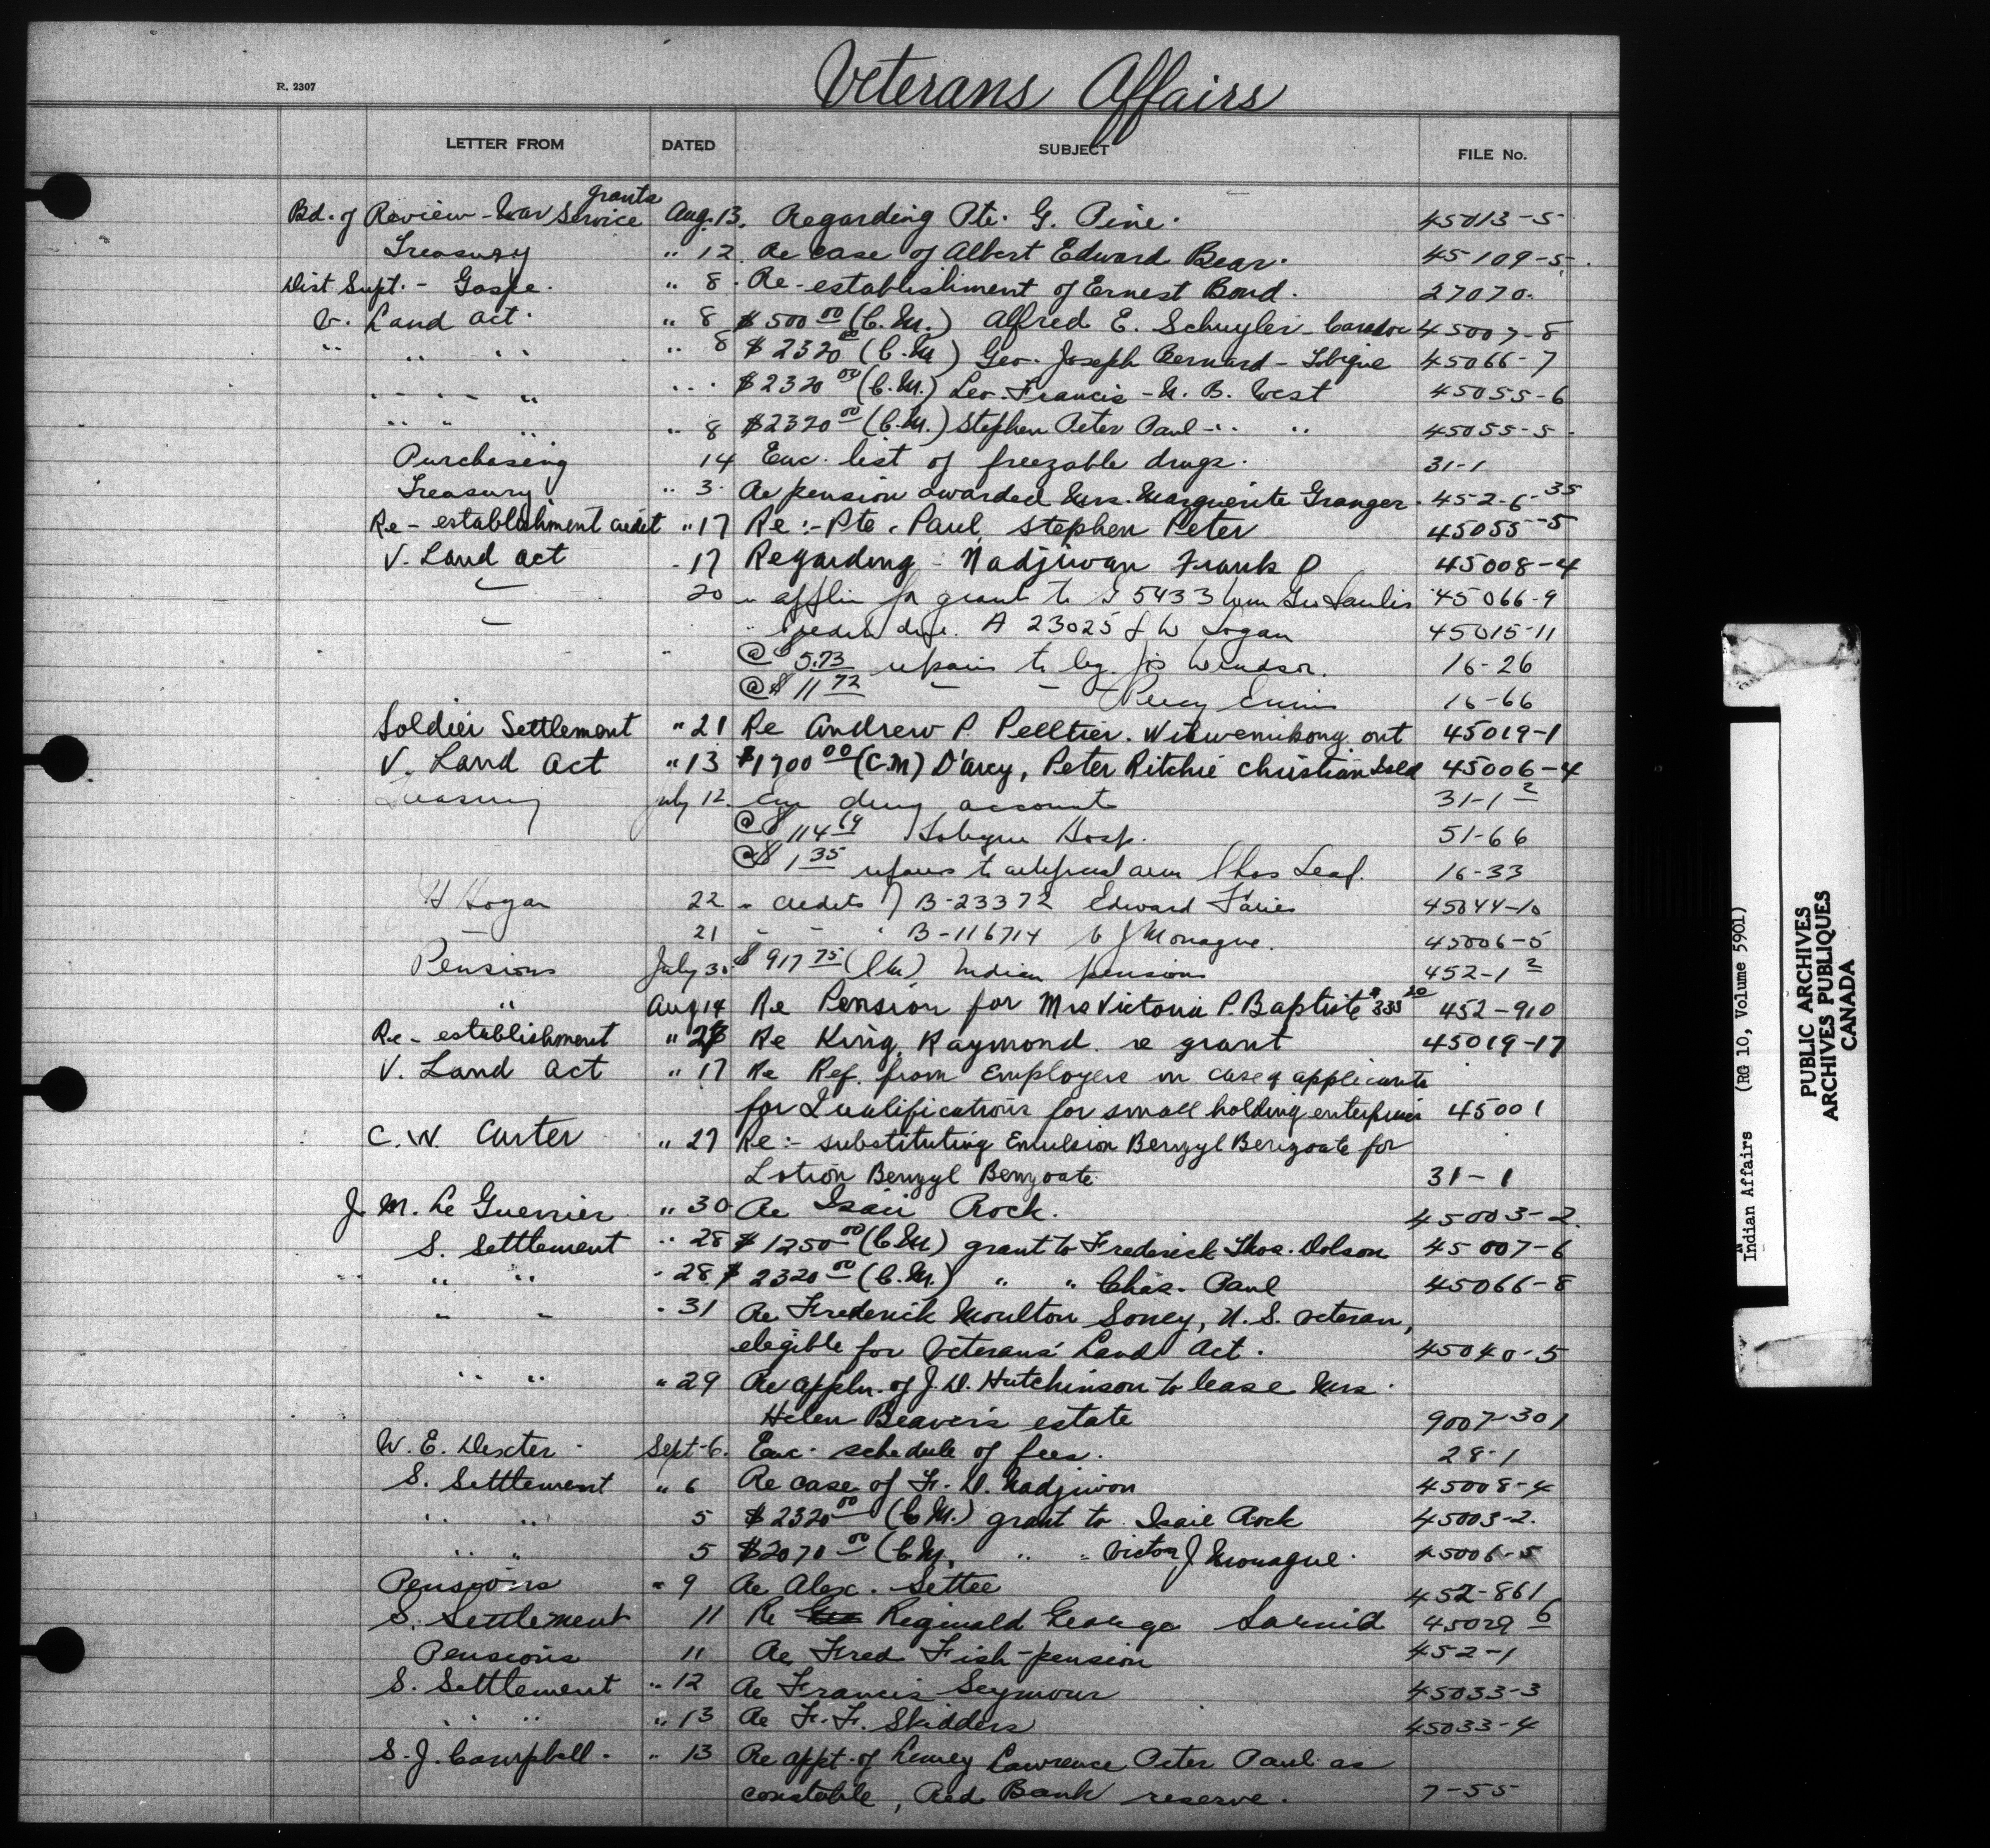 Veterans Affairs
R. 2307
LETTER FROM DATED SUBJECT FILE No.
grants
Bd. of Review - War Service Aug. 13. Regarding Pte. G. Pine. 45013-5
Treasury " 12. Re case of Albert Edward Bear. 45109-5.
Dist Supt. - Gaspe. " 8. Re-establishment of Ernest Bond. 27070.
V. Land Act. " 8 $500 00 (C.M.) Alfred E. Schuyler - Caradoc 45007-8
" " " " 8 $2320 00 (C.M) Geo. Joseph Bernard - 45066-7
" " " " $2320 00 (C.M.) Leo Francis - N. B. West 45055-6
" " " " 8 $2320 00 (C.M.) Stephen Peter Paul - " " 45055-5
Purchasing 14 Enc. list of freezable drugs. 31-1
Treasury. " 3. Re pension awarded Mrs. Marguerite Granger. 452-6-35
Re-establishment credit " 17 Re:- Pte. Paul, Stephen Peter 45055-5
V. Land Act " 17 Regarding - Nadjiwan Frank P 45008-4
20 " applin for grant to 5433 Wm Geo Saulis 45066-9
" credit due. A 23025 W Logan 45015-11
@ $5.73 repairs to leg. Jos Windsor. 16-26
@ $11 72 - - Percy 16-66
Soldier Settlement " 21 Re Andrew P Pelltier. Wikwemikong ont 45019-1
V. Land Act " 13 $1700 00 (C.M) D'Arcy, Peter Ritchie Christian Isld 45006-4
Treasury July 12. drug account 31-1 2
@ $114 69 Tobique Hosp. 51-66
@ $1 35 repairs to artificial arm Chas Leaf. 16-33
H Hogan 22 " Credits of B-23372 Edward Faries 45044-10
21 - - " B-116714 V J Monague. 45006-5
Pensions July 30 $917 75 (CM) Indian pensions 452-1 2
" Aug 14 Re Pension for Mrs Victoria P. Baptiste $335 20 452-910
Re-establishment " 28 Re King, Raymond re grant 45019-17
V. Land Act " 17 Re Ref. from Employers in case of applicants
for Qualifications for small holding enterprises 45001
C. W. Carter " 27 Re:- substituting Emulsion Benzyl Benzoate for
Lotion Benzyl Benzoate. 31-1
J. M. Le Guerrier " 30 Re Isaie Rock. 45003-2.
S. Settlement " 28 $1250 00 (C.M) grant to Frederick Thos. Dolson 45007-6
" " " 28. $2320 00 (C.M.) " " Chas. Paul 45066-8
" " " 31 Re Frederick Moulton Soney, U. S. veteran,
elegible for Veterans' Land Act. 45040-5
" " " 29 Re appln. of J. D. Hutchinson to lease Mrs.
Helen Beaver's estate 9007-301
W. E. Dexter. Sept-6. Enc. schedule of fees. 28-1
S. Settlement " 6 Re case of F. D. Nadjiwon 45008-4
" " 5 $2320 00 (C.M.) grant to Isaie Rock 45003-2.
" " 5 $2070 00 (C.M. " " Victor J Monague. 45006-5
Pensions " 9 Re Alex. Settee 452-861
S. Settlement 11 Re Reginald George Sarnia 45029 6
Pensions 11 Re Fred Fish - pension 452-1
S. Settlement " 12 Re Francis Seymour 45033-3
" " " 13 Re F. F. Skidders 45033-4
S. J. Campbell. " 13 Re appt. of Lawrence Peter Paul as
constable, Red Bank reserve. 7-55
Indian Affairs (RG 10, Volume 5901)
PUBLIC ARCHIVES
ARCHIVES PUBLIQUES
CANADA